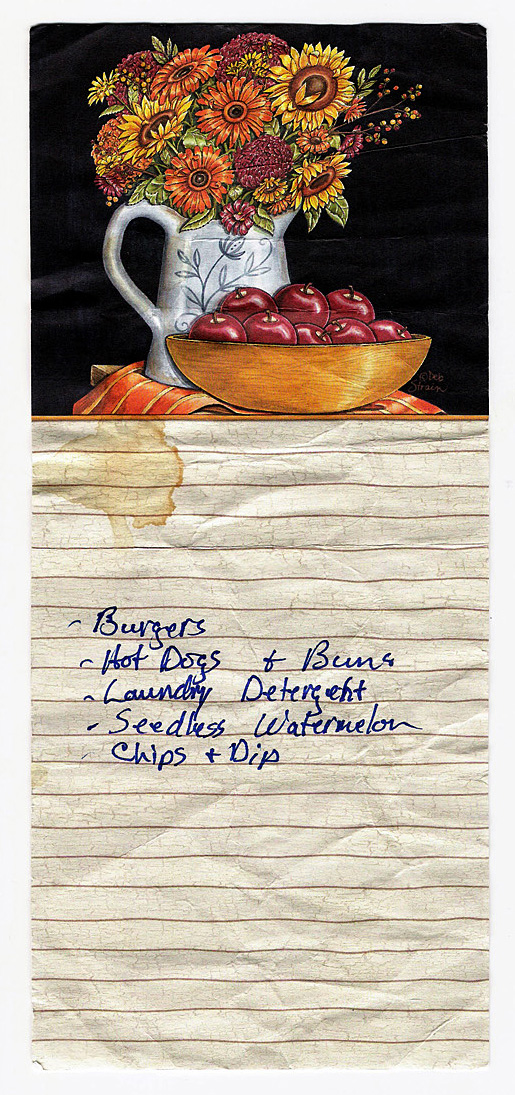 ©Deb
Strain
- Burgers
- Hot Dogs + Buns
- Laundry Detergent
- Seedless Watermelon
Chips + Dip